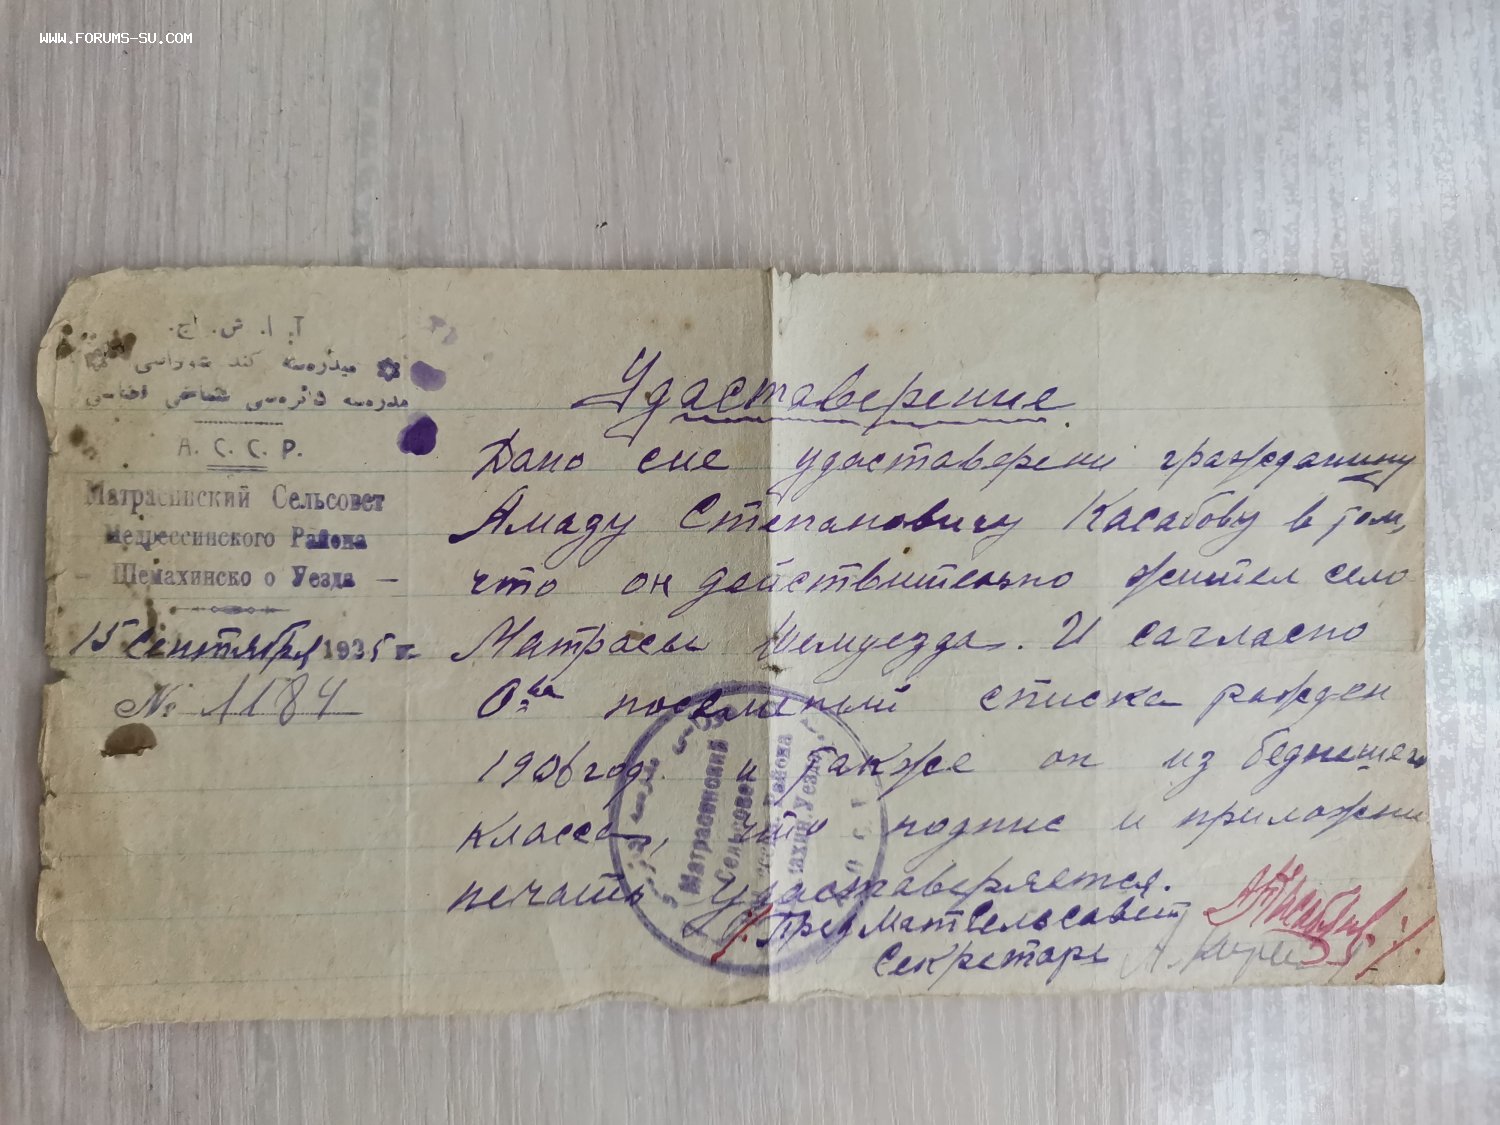 WWW.FORUMS-SU.COM
آ. ا. ش. ج.
كند شوراسی
شماخی
А. С. С. Р.
Матрасинский Сельсовет
Медрессинского Района
Шемахинско о Уезда
15 Сентября 1935 г.
№ 1184
Удаставерение
Дано сие удаставерени гражданину
Амаду Степановичу Касабову в том,
что он действительно жител село
Матрасы Шемуездда. И сагласно
посемейный списка рожден
1906 год. и также он из беднешего
класса, что подпис и приложени
печать удаставеряется.
Пред МатСельсавет
Секретарь
Матрасинский
Сельсовет
Района
Уезда